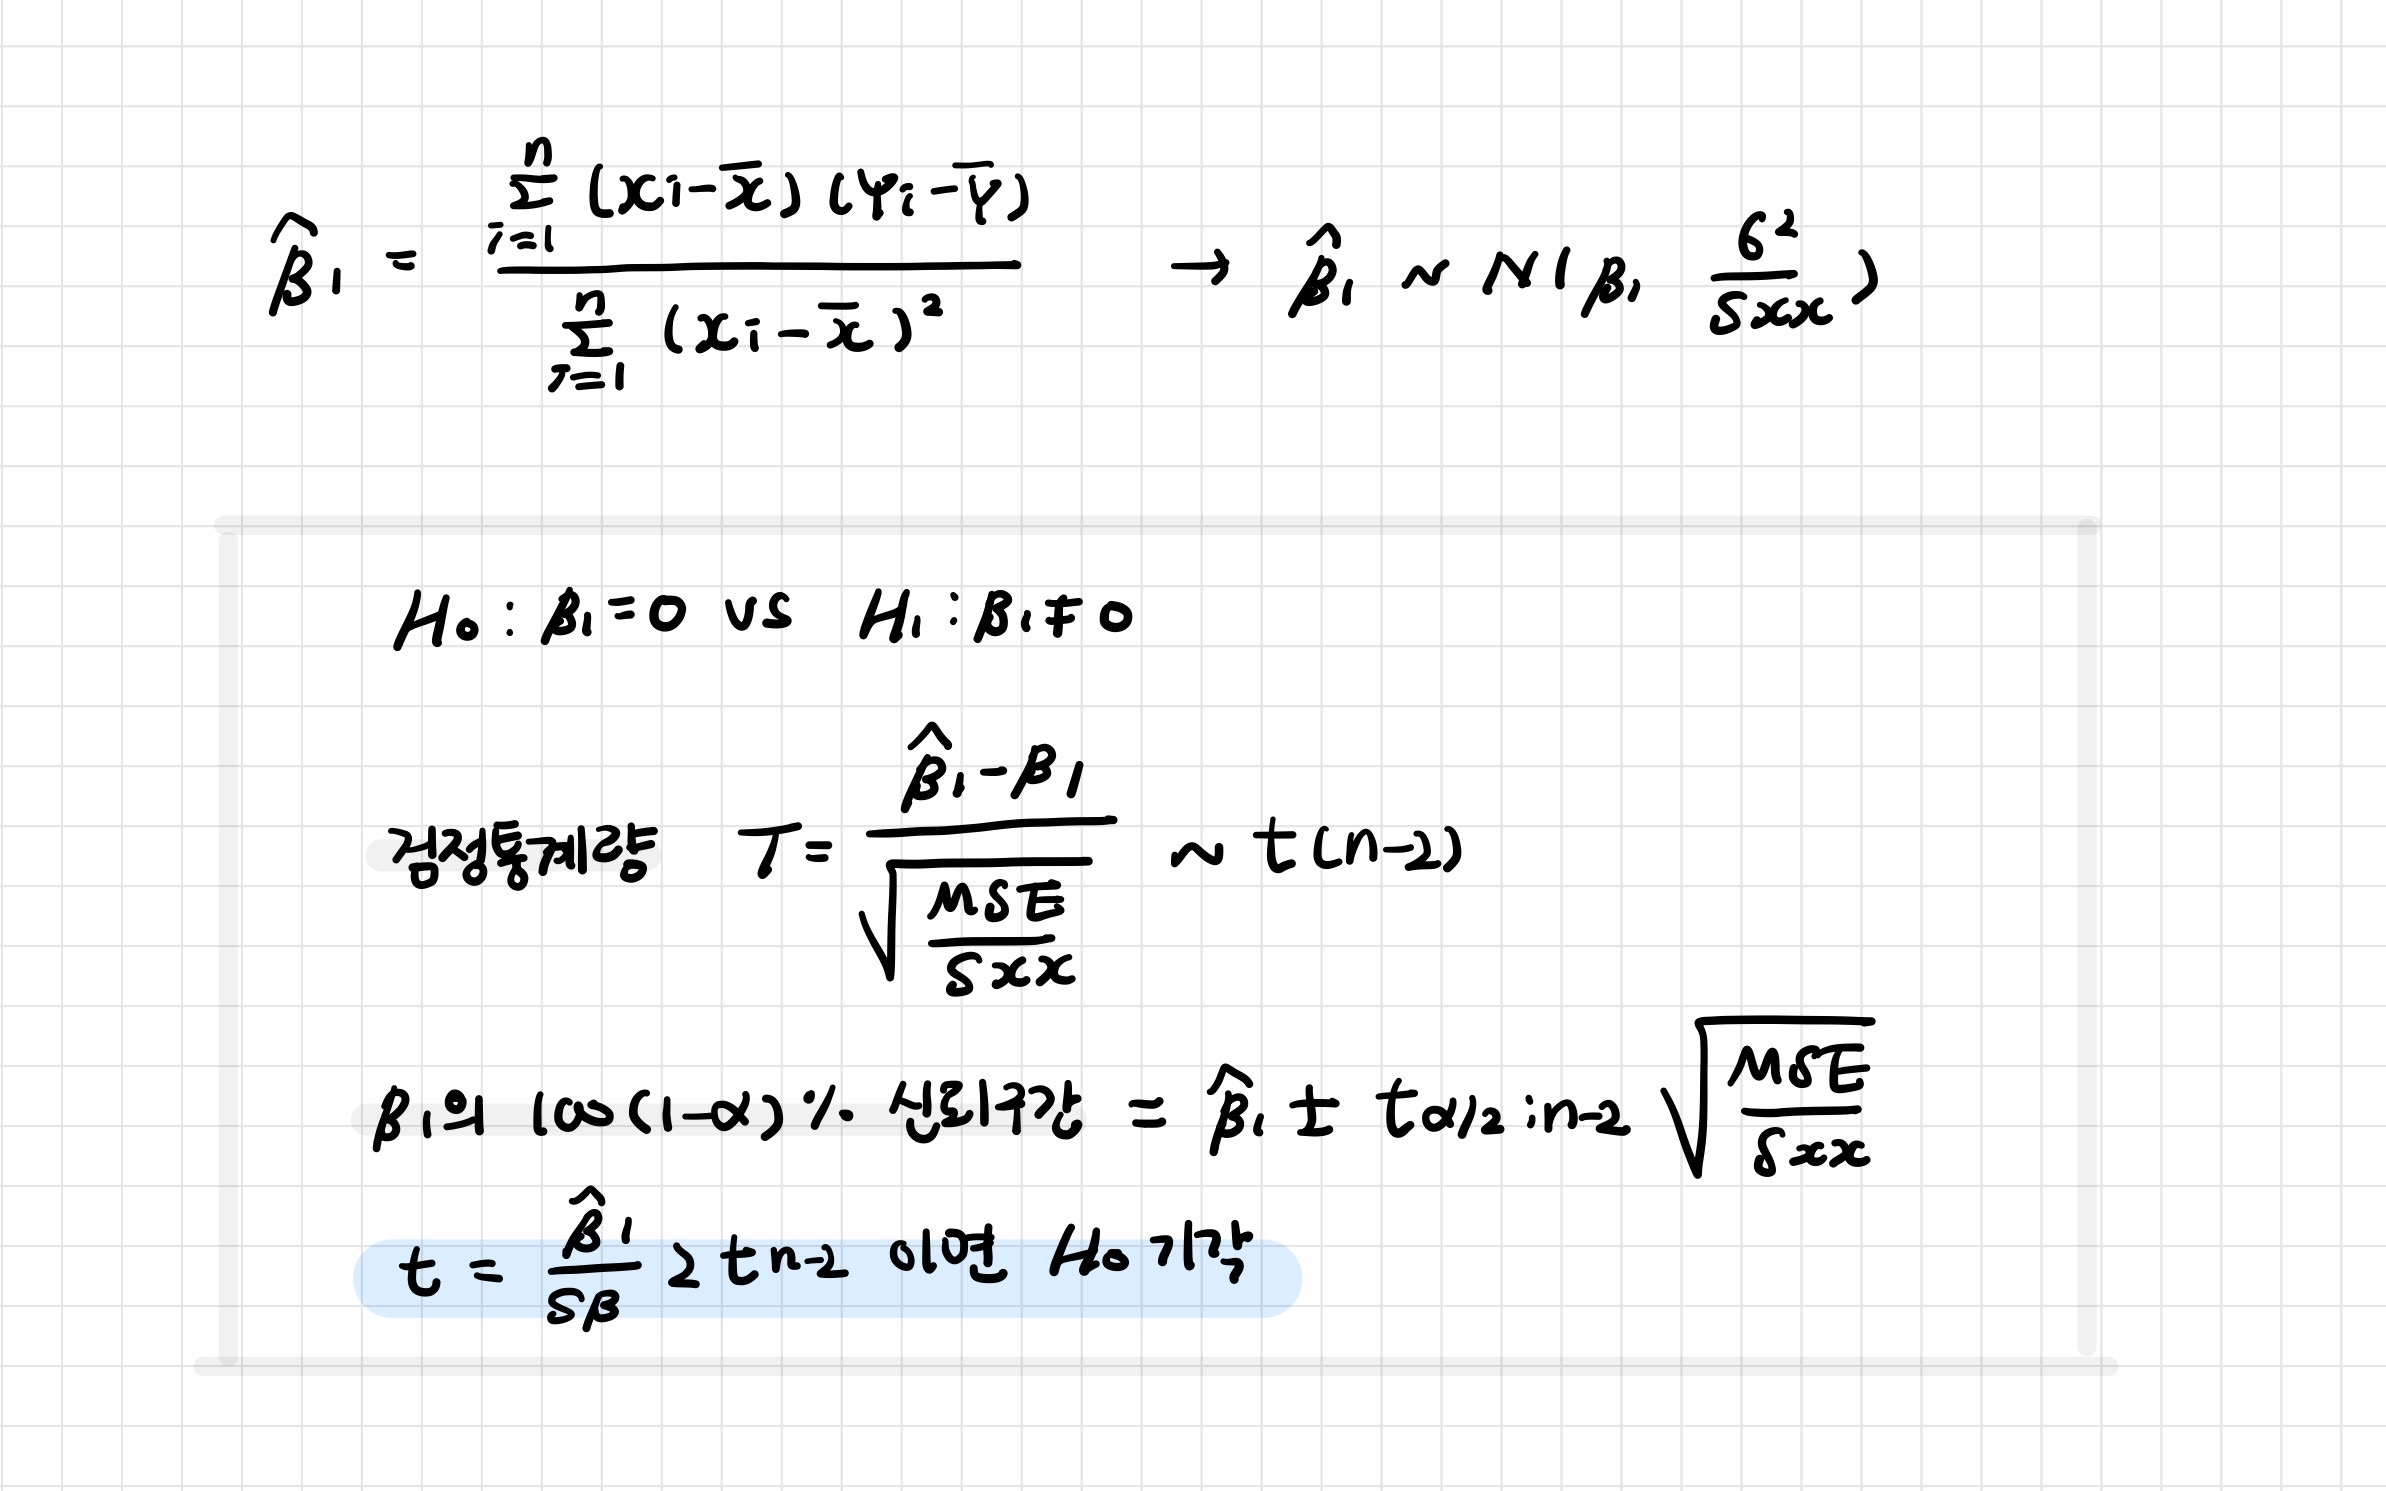 β̂₁ = Σⁿᵢ₌₁ (xi-x̄)(yi-ȳ) / Σⁿᵢ₌₁ (xi-x̄)² → β̂₁ ~ N(β₁, σ²/Sxx)
H₀ : β₁=0 vs H₁ : β₁≠0
검정통계량 T= (β̂₁-β₁) / √(MSE/Sxx) ~ t(n-2)
β₁의 100(1-α)% 신뢰구간 = β̂₁ ± tα/2;n-2 √(MSE/Sxx)
t = β̂₁/Sβ ≥ tn-2 이면 H₀ 기각